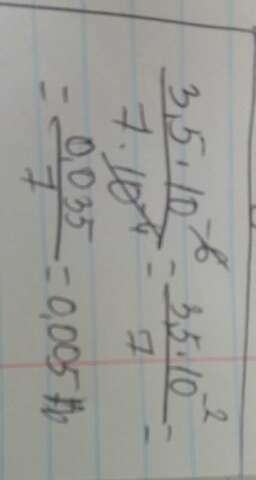 3,5·10⁻⁶ / 7·10⁻⁴ = 3,5·10⁻² / 7 =
= 0,035 / 7 = 0,005